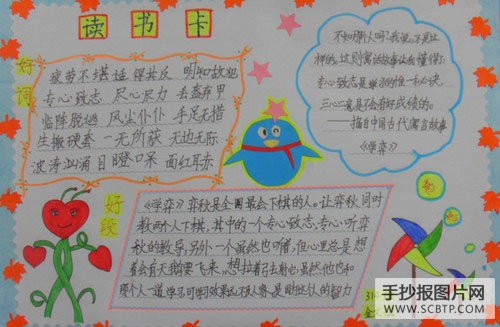 读书卡
好词
疲劳不堪 适得其反 明知故犯
专心致志 尽心尽力 丢盔弃甲
临阵脱逃 风尘仆仆 手足无措
生搬硬套 一无所获 无边无际
波涛汹涌 目瞪口呆 面红耳赤
不知哪人吗? 我说,不是这
样的。这则寓言故事让我懂得:
专心致志是学习的惟一秘诀,
三心二意是不会有好成绩的。
——摘自中国古代寓言故事
《学弈》
好段
《学弈》弈秋是全国最会下棋的人。让弈秋同时
教两个人下棋,其中的一个专心致志,专心听弈
秋的教导,另外一个虽然也听着,但心里总是想
着会有天鹅要飞来,想拉着弓去射它,虽然他也和
那个人一道学习,可学习效果远不及人家。是因为
的智力
手抄报图片网
WWW.SCBTP.COM